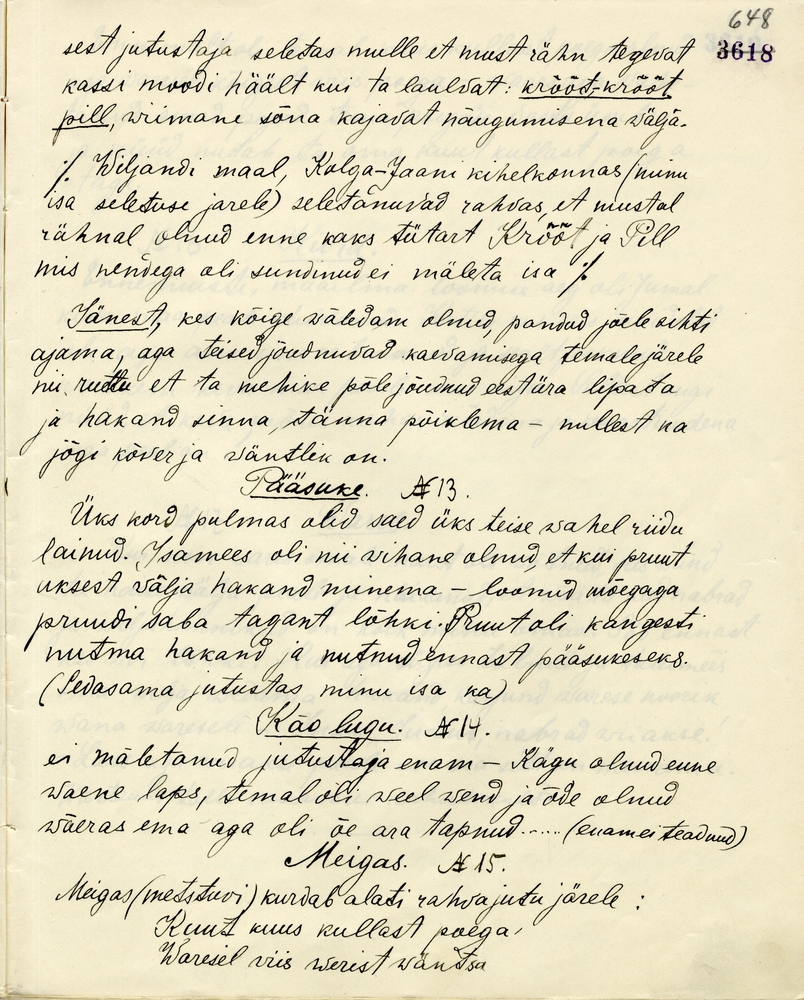 648
3618
sest jutustaja seletas mulle et must rähn tegevat
kassi moodi häält kui ta laulvat: krõõt-krõõt
pill, wiimane sõna kajavat näugumisena wälja.
⁒ Wiljandi maal, Kolga-Jaani kihelkonnas (minu
isa seletuse jarele) seletanuvad rahvas, et mustal
rähnal olnud enne kaks tütart Krõõt ja Pill
mis nendega oli sündinud ei mäleta isa ⁒
Jänest, kes kõige wäledam olnud, pandud jõele sihti
ajama, aga teised jõudnuvad kaevamisega temale järele
nii ruttu et ta mehike põle jõudnud eest ära lipata
ja hakand sinna, tänna põiklema – nullest ka
jõgi kõver ja wäntlik on.
Pääsuke. № 13.
Üks kord pulmas olid saed üks teise wahel riidu
läinud. Isamees oli nii vihane olnud, et kui pruut
uksest välja hakand minema – loonud mõegaga
pruudi saba tagant lõhki. Pruut oli kangesti
nutma hakand ja nutnud ennast pääsukeseks.
(Sedasama jutustas minu isa ka)
Käo lugu. № 14.
ei mäletanud jutustaja enam – Kägu olnud enne
waene laps, temal oli weel wend ja õde olnud
wõeras ema aga oli õe ara tapnud..... (enam ei teadnud)
Meigas. № 15.
Meigas (metstuvi) kurdab alati rahva jutu järele:
Kuut kuus kullast poega,
Waresel viis werist wäntsa